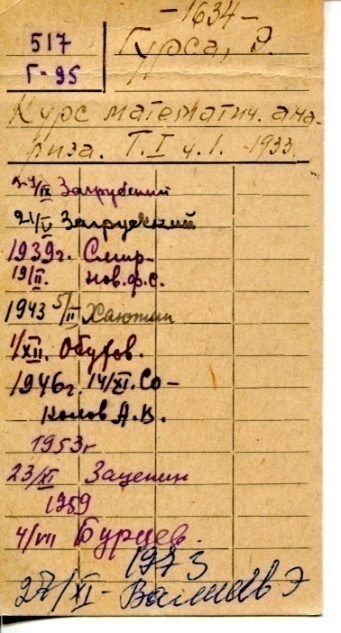 -1634-
517
Г-95
Гурса, Э.
Курс математич. ана-
лиза. Т.I ч.1. 1933
/IX Загрубский
21/V Загрубский
1939г. Смир-
19/II. нов.ф.с.
1943 5/II Хаютин
1/XII. Обуров.
1946г. 14/XI. Со-
колов А.В.
1953г
23/XI Зацепин
1959
4/VII Бурцев.
1973
27/XI-